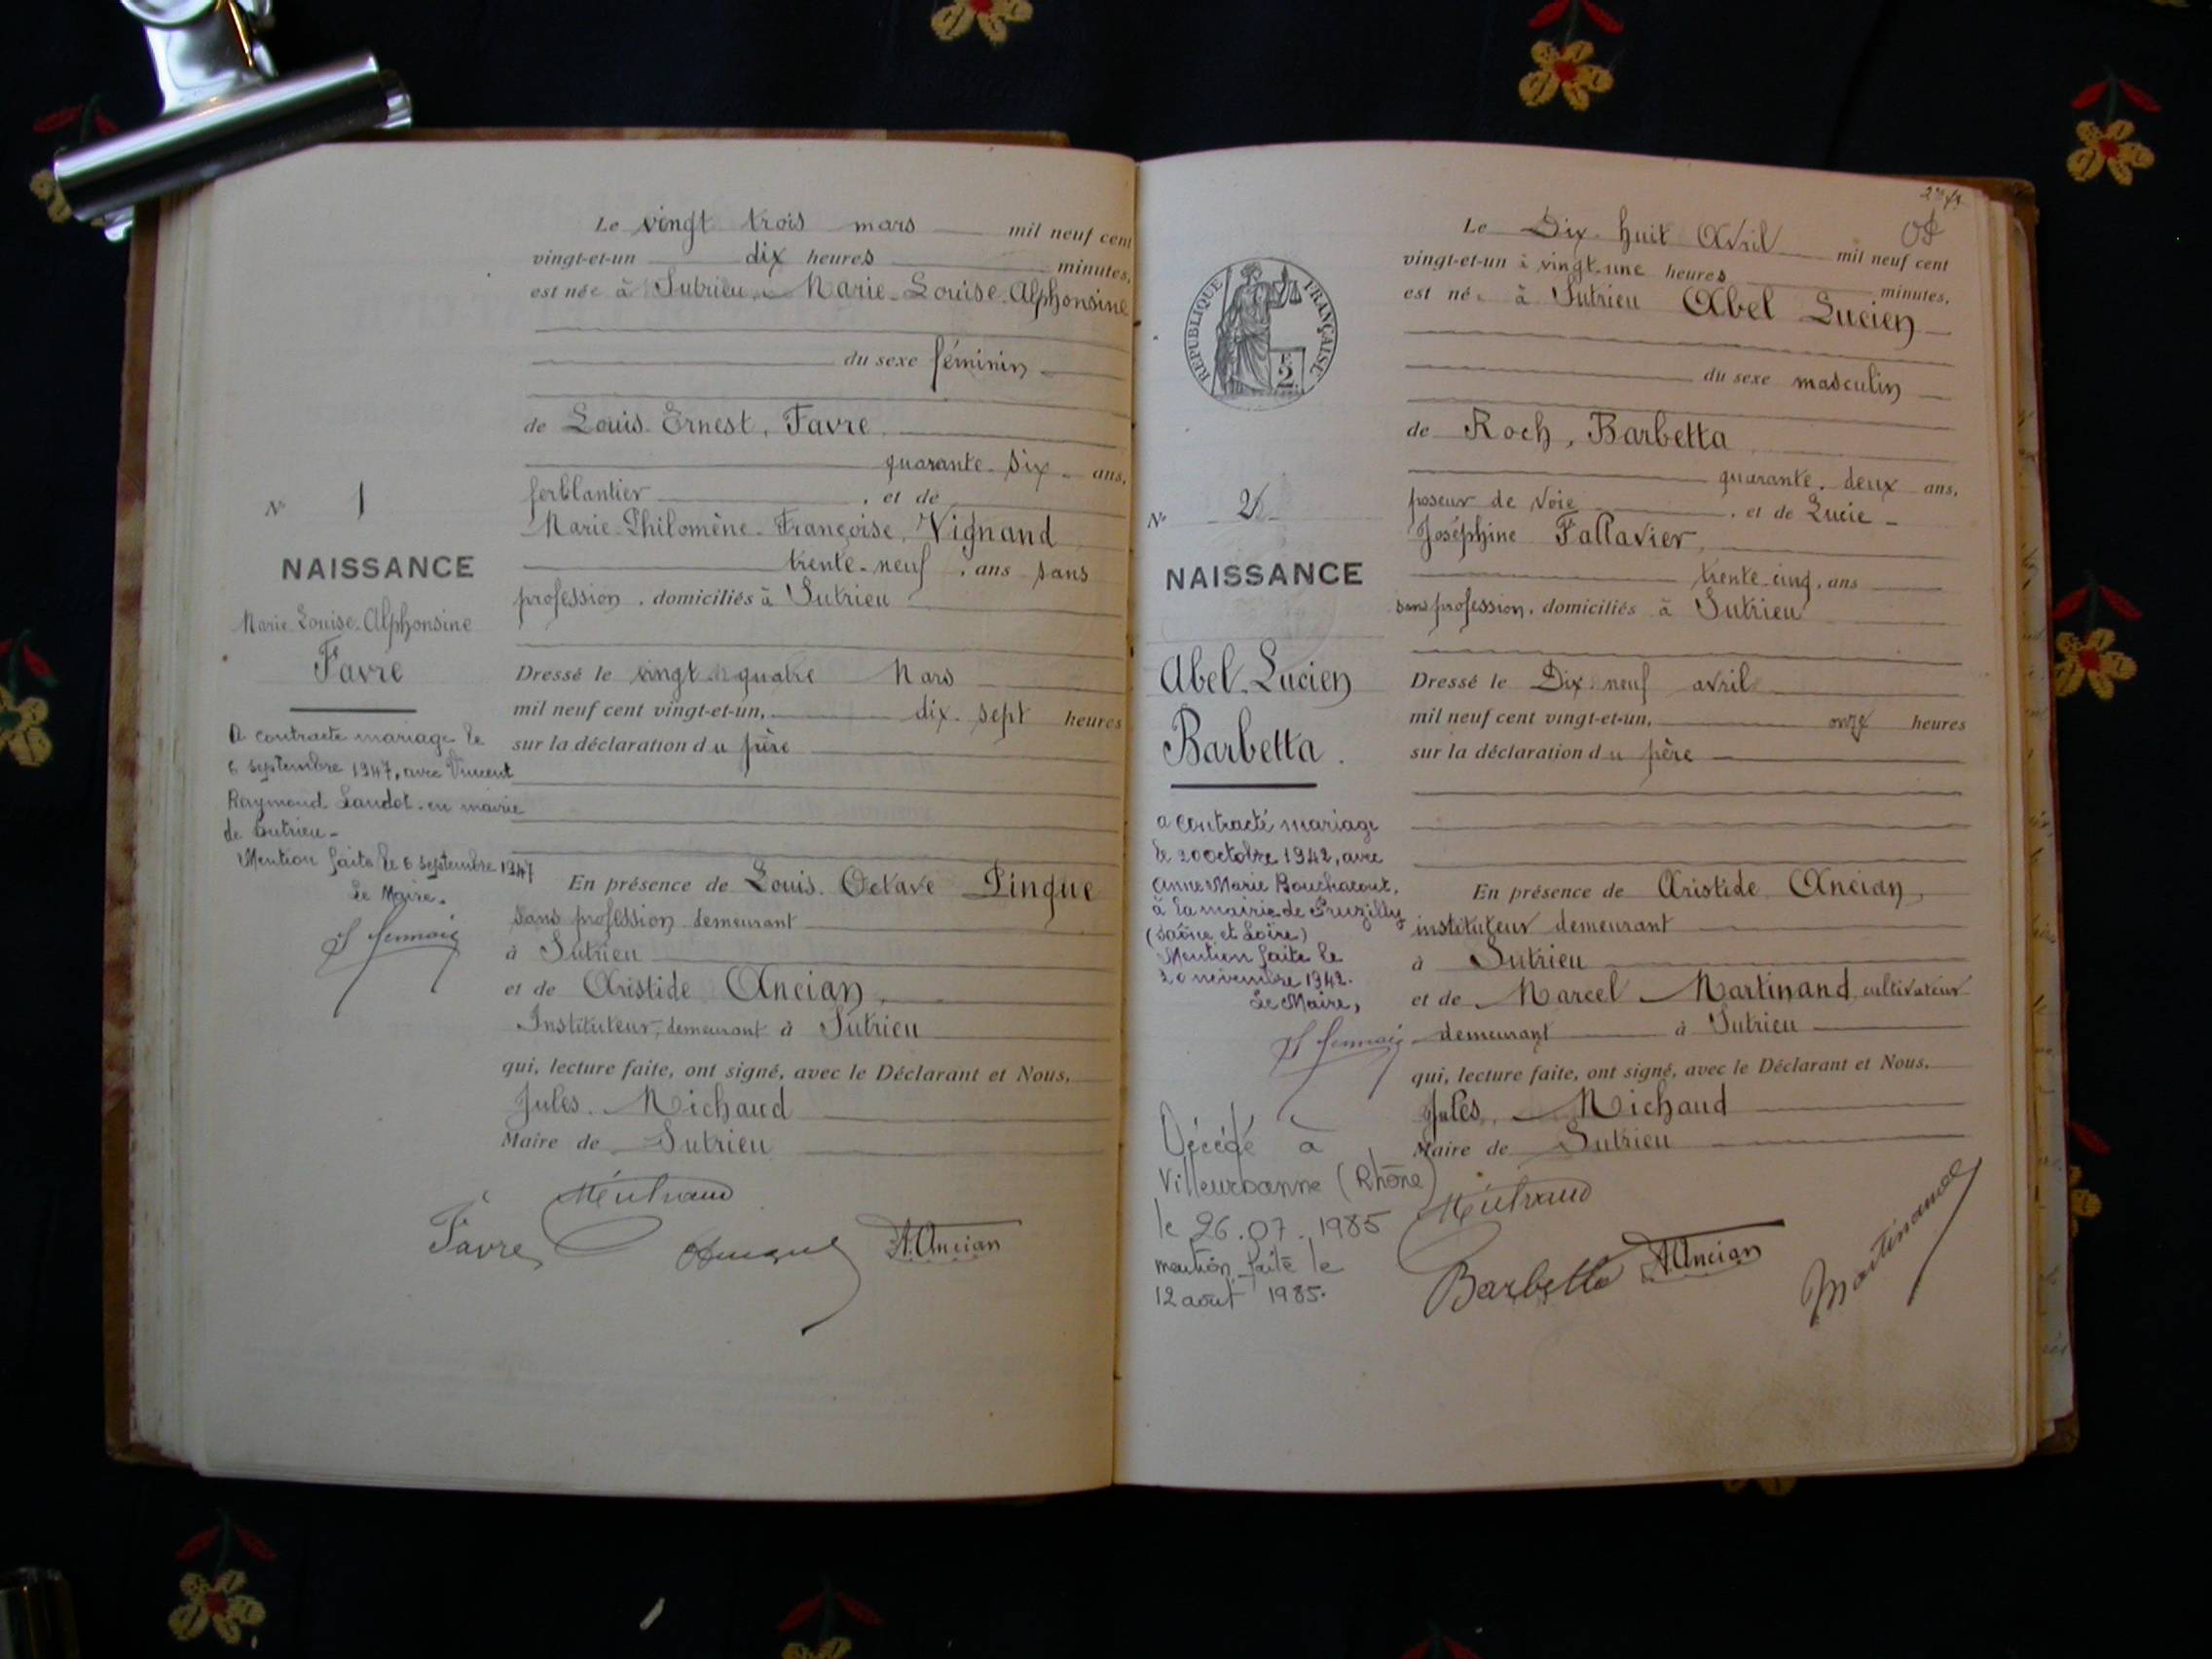 Le vingt trois mars mil neuf cent
vingt-et-un dix heures minutes,
est née à Sutrieu, Marie-Louise-Alphonsine
du sexe féminin
de Louis Ernest, Favre,
quarante-six ans,
ferblantier, et de
Marie-Philomène-Françoise, Vignand
trente-neuf, ans sans
profession, domiciliés à Sutrieu
Dressé le vingt quatre Mars
mil neuf cent vingt-et-un, dix-sept heures
sur la déclaration du père
En présence de Louis Octave Pingue
sans profession demeurant
à Sutrieu
et de Aristide Ancian,
Instituteur, demeurant à Sutrieu
qui, lecture faite, ont signé, avec le Déclarant et Nous,
Jules Michaud
Maire de Sutrieu
Favre
A. Ancian
N° 1
NAISSANCE
Marie-Louise-Alphonsine
Favre
A contracté mariage le
6 septembre 1947, avec Vincent
Raymond Laudet en mairie
de Sutrieu-
Mention faite le 6 septembre 1947
Le Maire.
RÉPUBLIQUE FRANÇAISE
2
N° 2
NAISSANCE
Abel Lucien
Barbetta.
a contracté mariage
le 20 octobre 1942, avec
Anne Marie Bouchacourt,
à la mairie de Pruzilly
(Saône et Loire)
Mention faite le
20 novembre 1942.
Le Maire,
Décédé à
Villeurbanne (Rhône)
le 26.07.1985
mention faite le
12 août 1985.
Le Dix-huit Avril mil neuf cent
vingt-et-un à vingt-une heures minutes,
est né à Sutrieu Abel Lucien
du sexe masculin
de Roch, Barbetta
quarante-deux ans,
poseur de voie, et de Lucie-
Joséphine Fallavier,
trente-cinq, ans
sans profession, domiciliés à Sutrieu
Dressé le Dix-neuf avril
mil neuf cent vingt-et-un, onze heures
sur la déclaration du père
En présence de Aristide Ancian,
instituteur demeurant
à Sutrieu
et de Marcel Martinand, cultivateur
demeurant à Sutrieu
qui, lecture faite, ont signé, avec le Déclarant et Nous.
Jules, Michaud
Maire de Sutrieu
Barbetta A Ancian Martinand